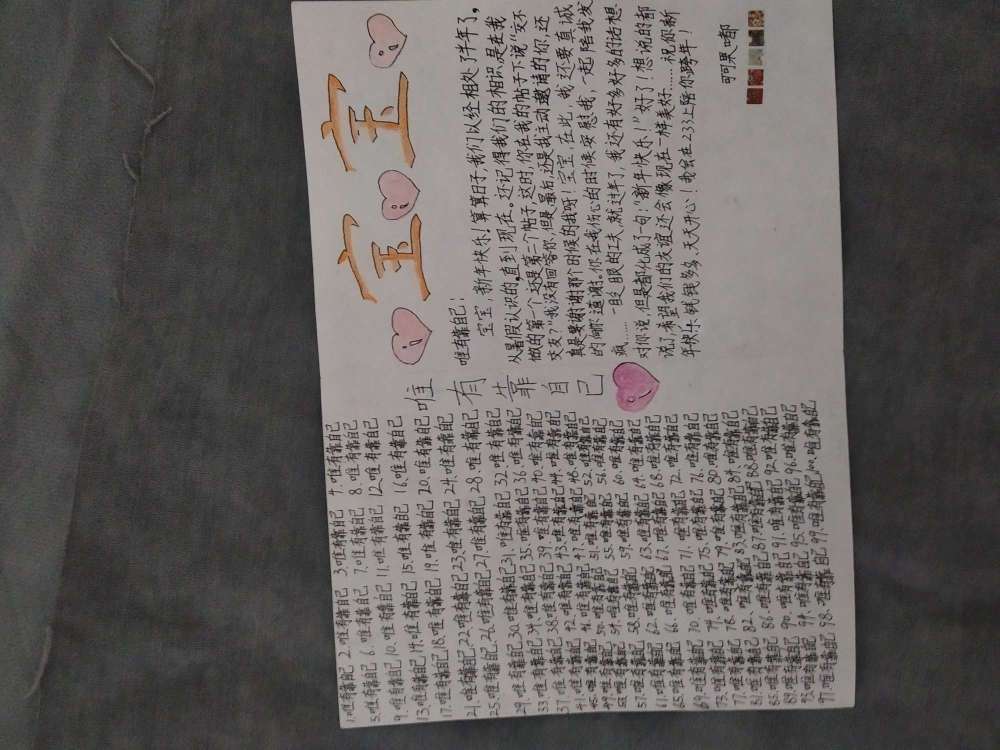 1.唯有靠自己 2.唯有靠自己 3.唯有靠自己 4.唯有靠自己
5.唯有靠自己 6.唯有靠自己 7.唯有靠自己 8.唯有靠自己
9.唯有靠自己 10.唯有靠自己 11.唯有靠自己 12.唯有靠自己
13.唯有靠自己 14.唯有靠自己 15.唯有靠自己 16.唯有靠自己
17.唯有靠自己 18.唯有靠自己 19.唯有靠自己 20.唯有靠自己
21.唯有靠自己 22.唯有靠自己 23.唯有靠自己 24.唯有靠自己
25.唯有靠自己 26.唯有靠自己 27.唯有靠自己 28.唯有靠自己
29.唯有靠自己 30.唯有靠自己 31.唯有靠自己 32.唯有靠自己
33.唯有靠自己 34.唯有靠自己 35.唯有靠自己 36.唯有靠自己
37.唯有靠自己 38.唯有靠自己 39.唯有靠自己 40.唯有靠自己
41.唯有靠自己 42.唯有靠自己 43.唯有靠自己 44.唯有靠自己
45.唯有靠自己 46.唯有靠自己 47.唯有靠自己 48.唯有靠自己
49.唯有靠自己 50.唯有靠自己 51.唯有靠自己 52.唯有靠自己
53.唯有靠自己 54.唯有靠自己 55.唯有靠自己 56.唯有靠自己
57.唯有靠自己 58.唯有靠自己 59.唯有靠自己 60.唯有靠自己
61.唯有靠自己 62.唯有靠自己 63.唯有靠自己 64.唯有靠自己
65.唯有靠自己 66.唯有靠自己 67.唯有靠自己 68.唯有靠自己
69.唯有靠自己 70.唯有靠自己 71.唯有靠自己 72.唯有靠自己
73.唯有靠自己 74.唯有靠自己 75.唯有靠自己 76.唯有靠自己
77.唯有靠自己 78.唯有靠自己 79.唯有靠自己 80.唯有靠自己
81.唯有靠自己 82.唯有靠自己 83.唯有靠自己 84.唯有靠自己
85.唯有靠自己 86.唯有靠自己 87.唯有靠自己 88.唯有靠自己
89.唯有靠自己 90.唯有靠自己 91.唯有靠自己 92.唯有靠自己
93.唯有靠自己 94.唯有靠自己 95.唯有靠自己 96.唯有靠自己
97.唯有靠自己 98.唯有靠自己 99.唯有靠自己 100.唯有靠自己
唯有靠自己
宝宝
唯有靠自己：
宝宝，新年快乐！算算日子，我们以经相处了半年了，
从暑假认识的，直到现在。还记得我们的相识，是在我
做的第一个还是第二个帖子这时，你在我的帖子下说“交不
交友？”我没有回答你，但是最后，还是我主动邀请的你，还
真是要谢谢那个时候的我呀！宝宝，在此，我还要真诚
的向你道谢。你在我伤心的时候安慰我，一起陪我发
疯……一眨眼的工夫，就过年了，我还有好多好多的话想
对你说，但是都化成了一句“新年快乐！”好了！想说的都
说了，希望我们的友谊还会像现在一样美好……祝你新
年快乐，钱钱多多，天天开心！我会在233上陪你跨年！
可可果嘟